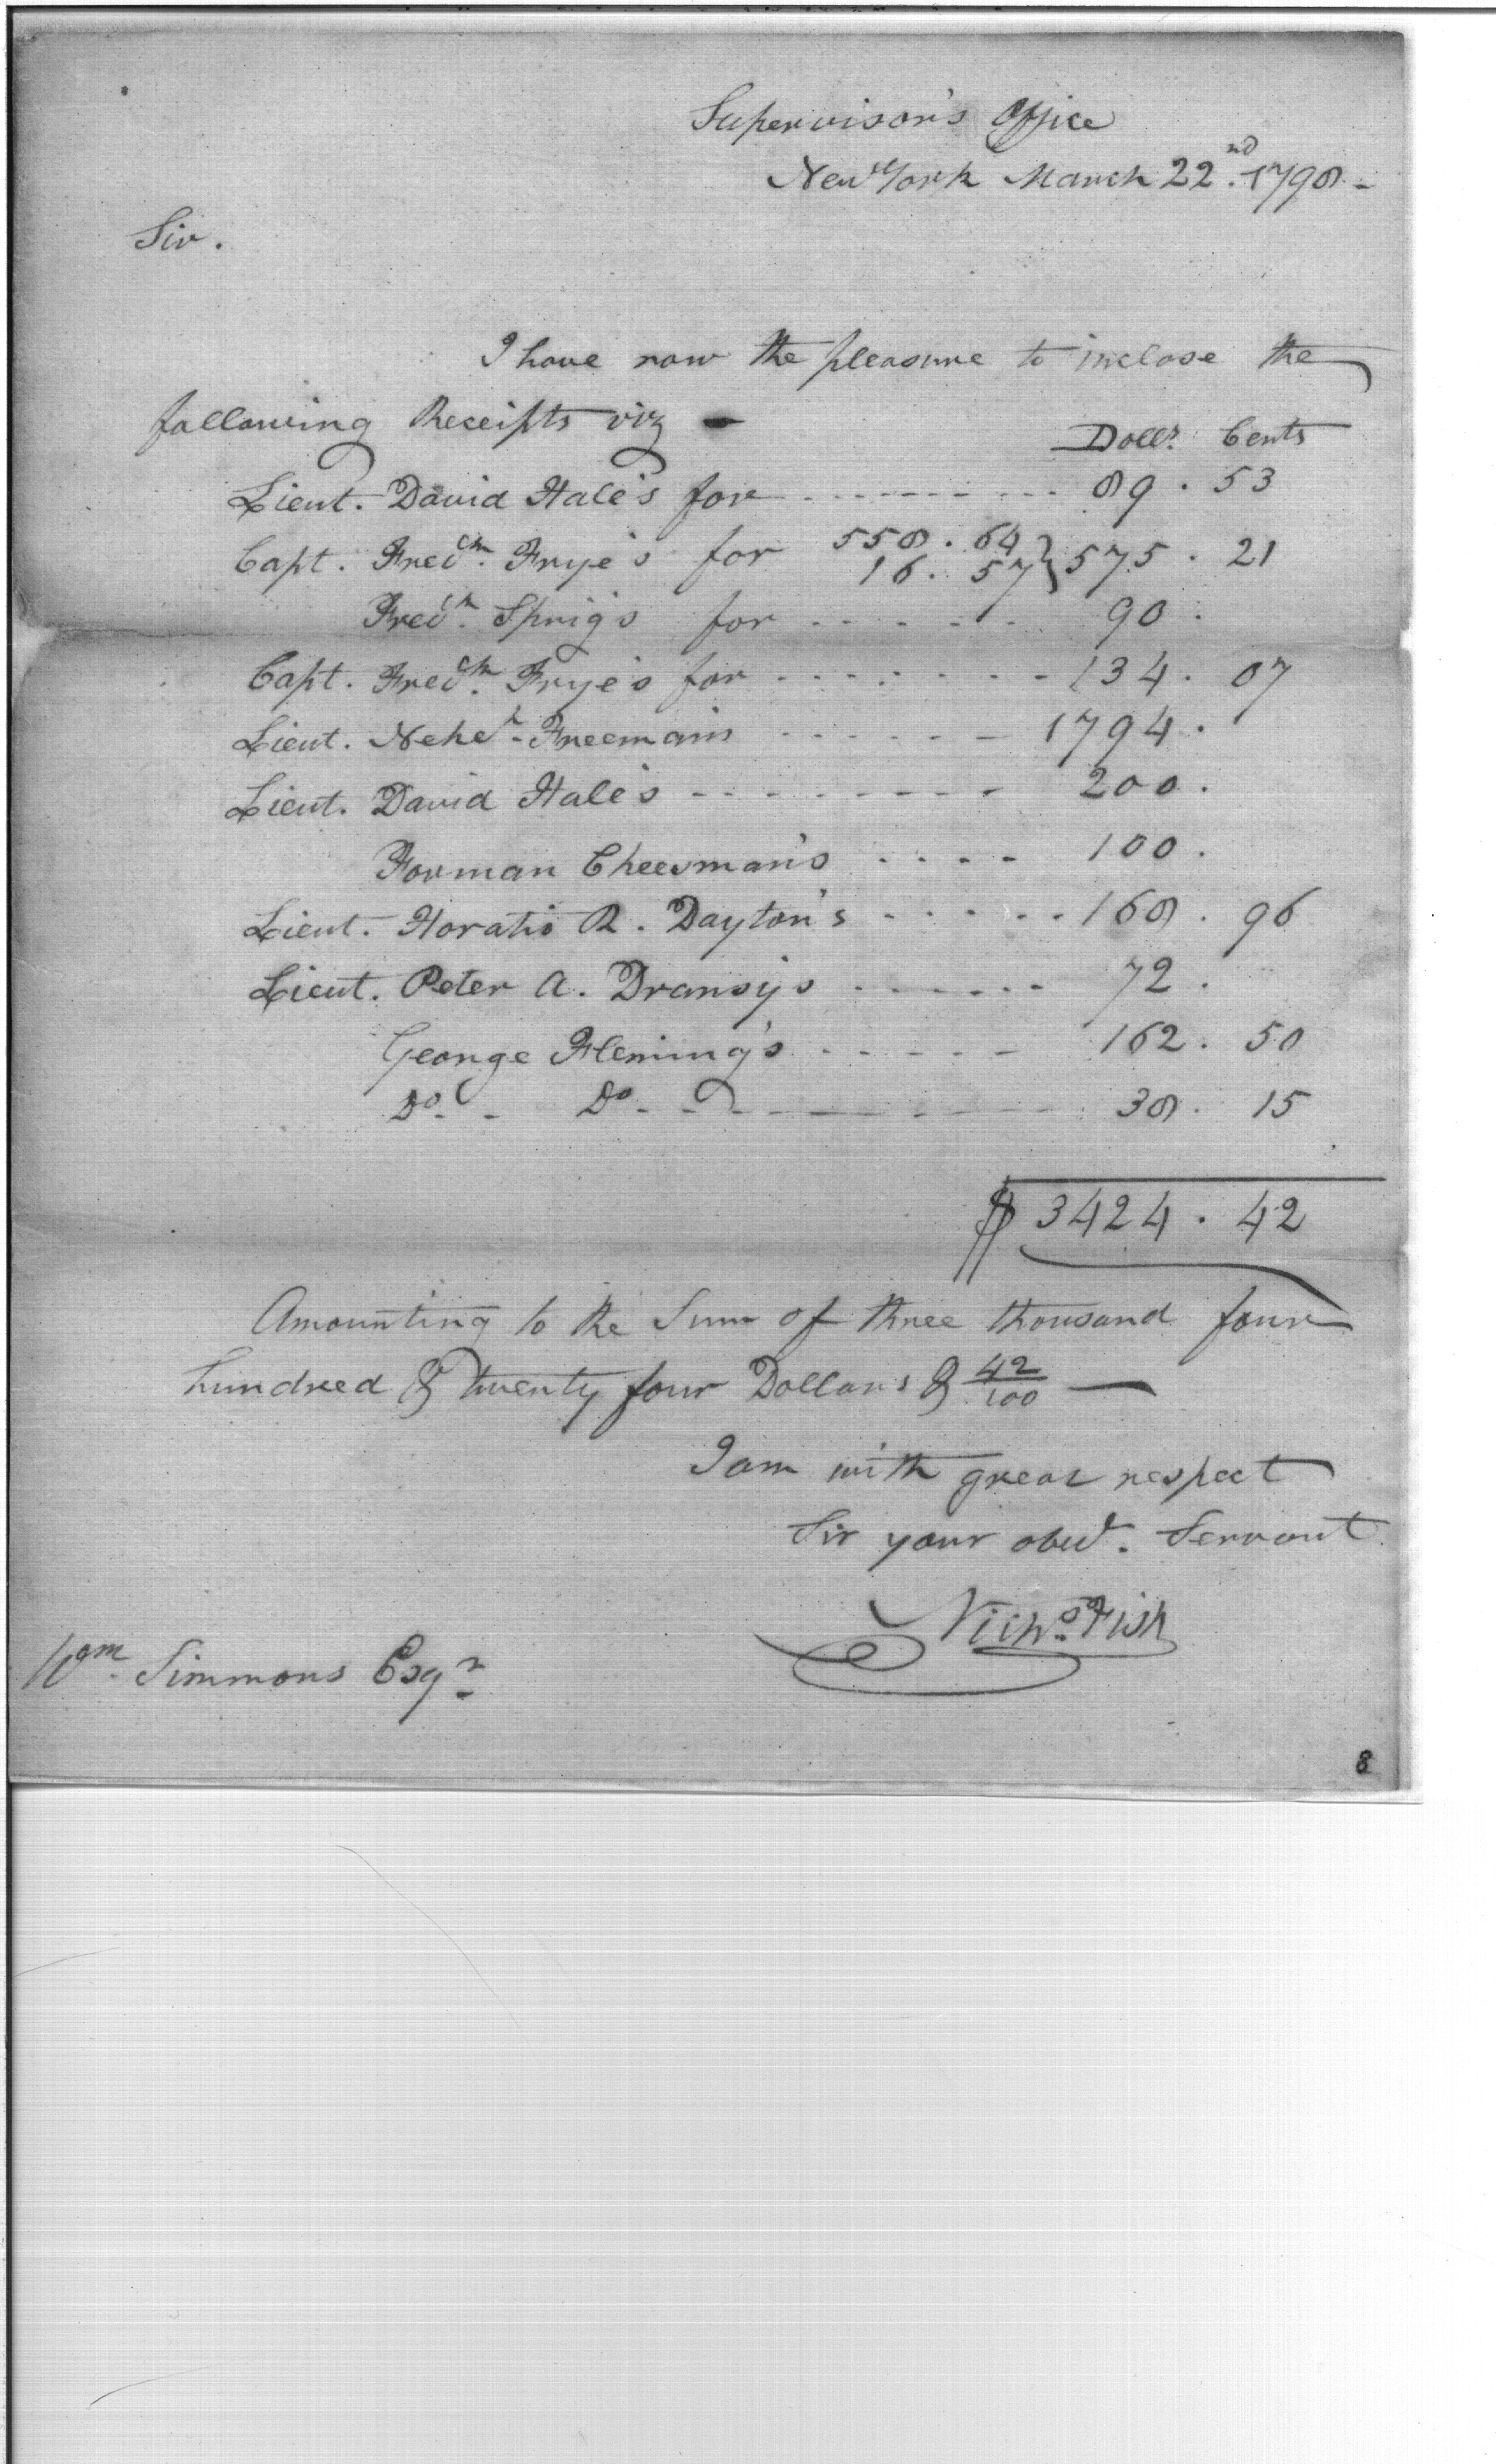 Supervisor's Office
New York March 22.nd 1798 -
Sir.
I have now the pleasure to inclose the
following Receipts viz -
Dolls. Cents
Lieut. David Hale's for - - - - - - - - - 89 . 53
Capt. Fredck. Frye's for 558 . 64 } 575 . 21
16 . 57
Fredck. Sprig's for - - - - - - 90 .
Capt. Fredck. Frye's for - - - - - - - - 134 . 07
Lieut. Neheh. Freeman's - - - - - - 1794 .
Lieut. David Hale's - - - - - - - - 200 .
Forman Cheesman's - - - - 100 .
Lieut. Horatio R. Dayton's - - - - - 168 . 96
Lieut. Peter A. Dransy's - - - - - - 72 .
George Fleming's - - - - - 162 . 50
Do. - Do. - - - - - - - - 38 . 15
$ 3424 . 42
Amounting to the Sum of three thousand four
hundred & twenty four Dollars & 42/100 —
I am with great respect
Sir your obedt. Servant
Nichs. Fish
Wm. Simmons Esqr.
8